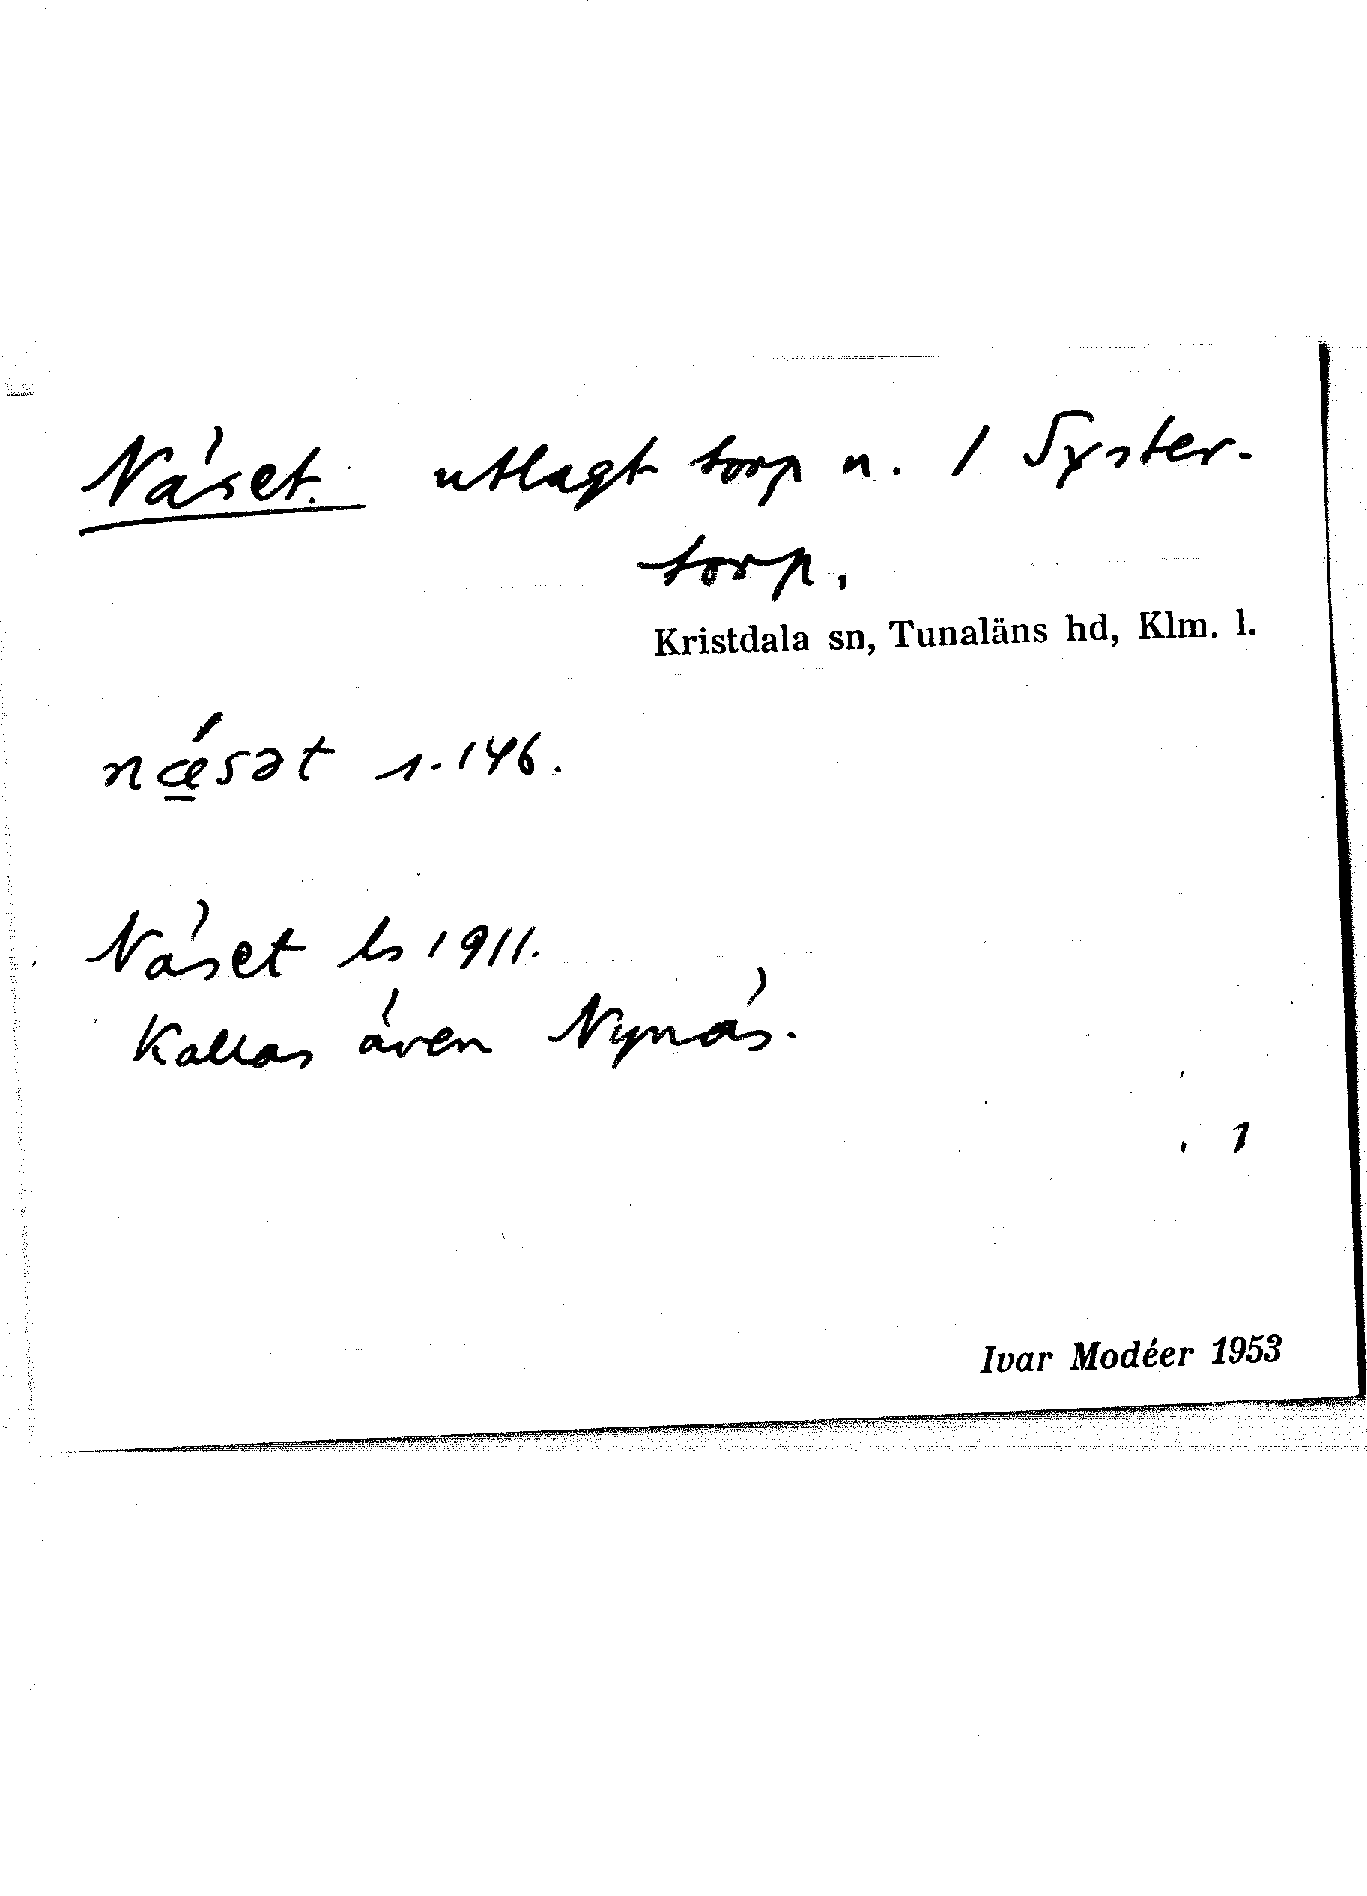 Näset. utlagt torp u. 1 Syster-
torp.
Kristdala sn, Tunaläns hd, Klm. l.
nǽ̲sət s. 146.
Näset ls 1911.
Kallas även Nynäs.
1
Ivar Modéer 1953